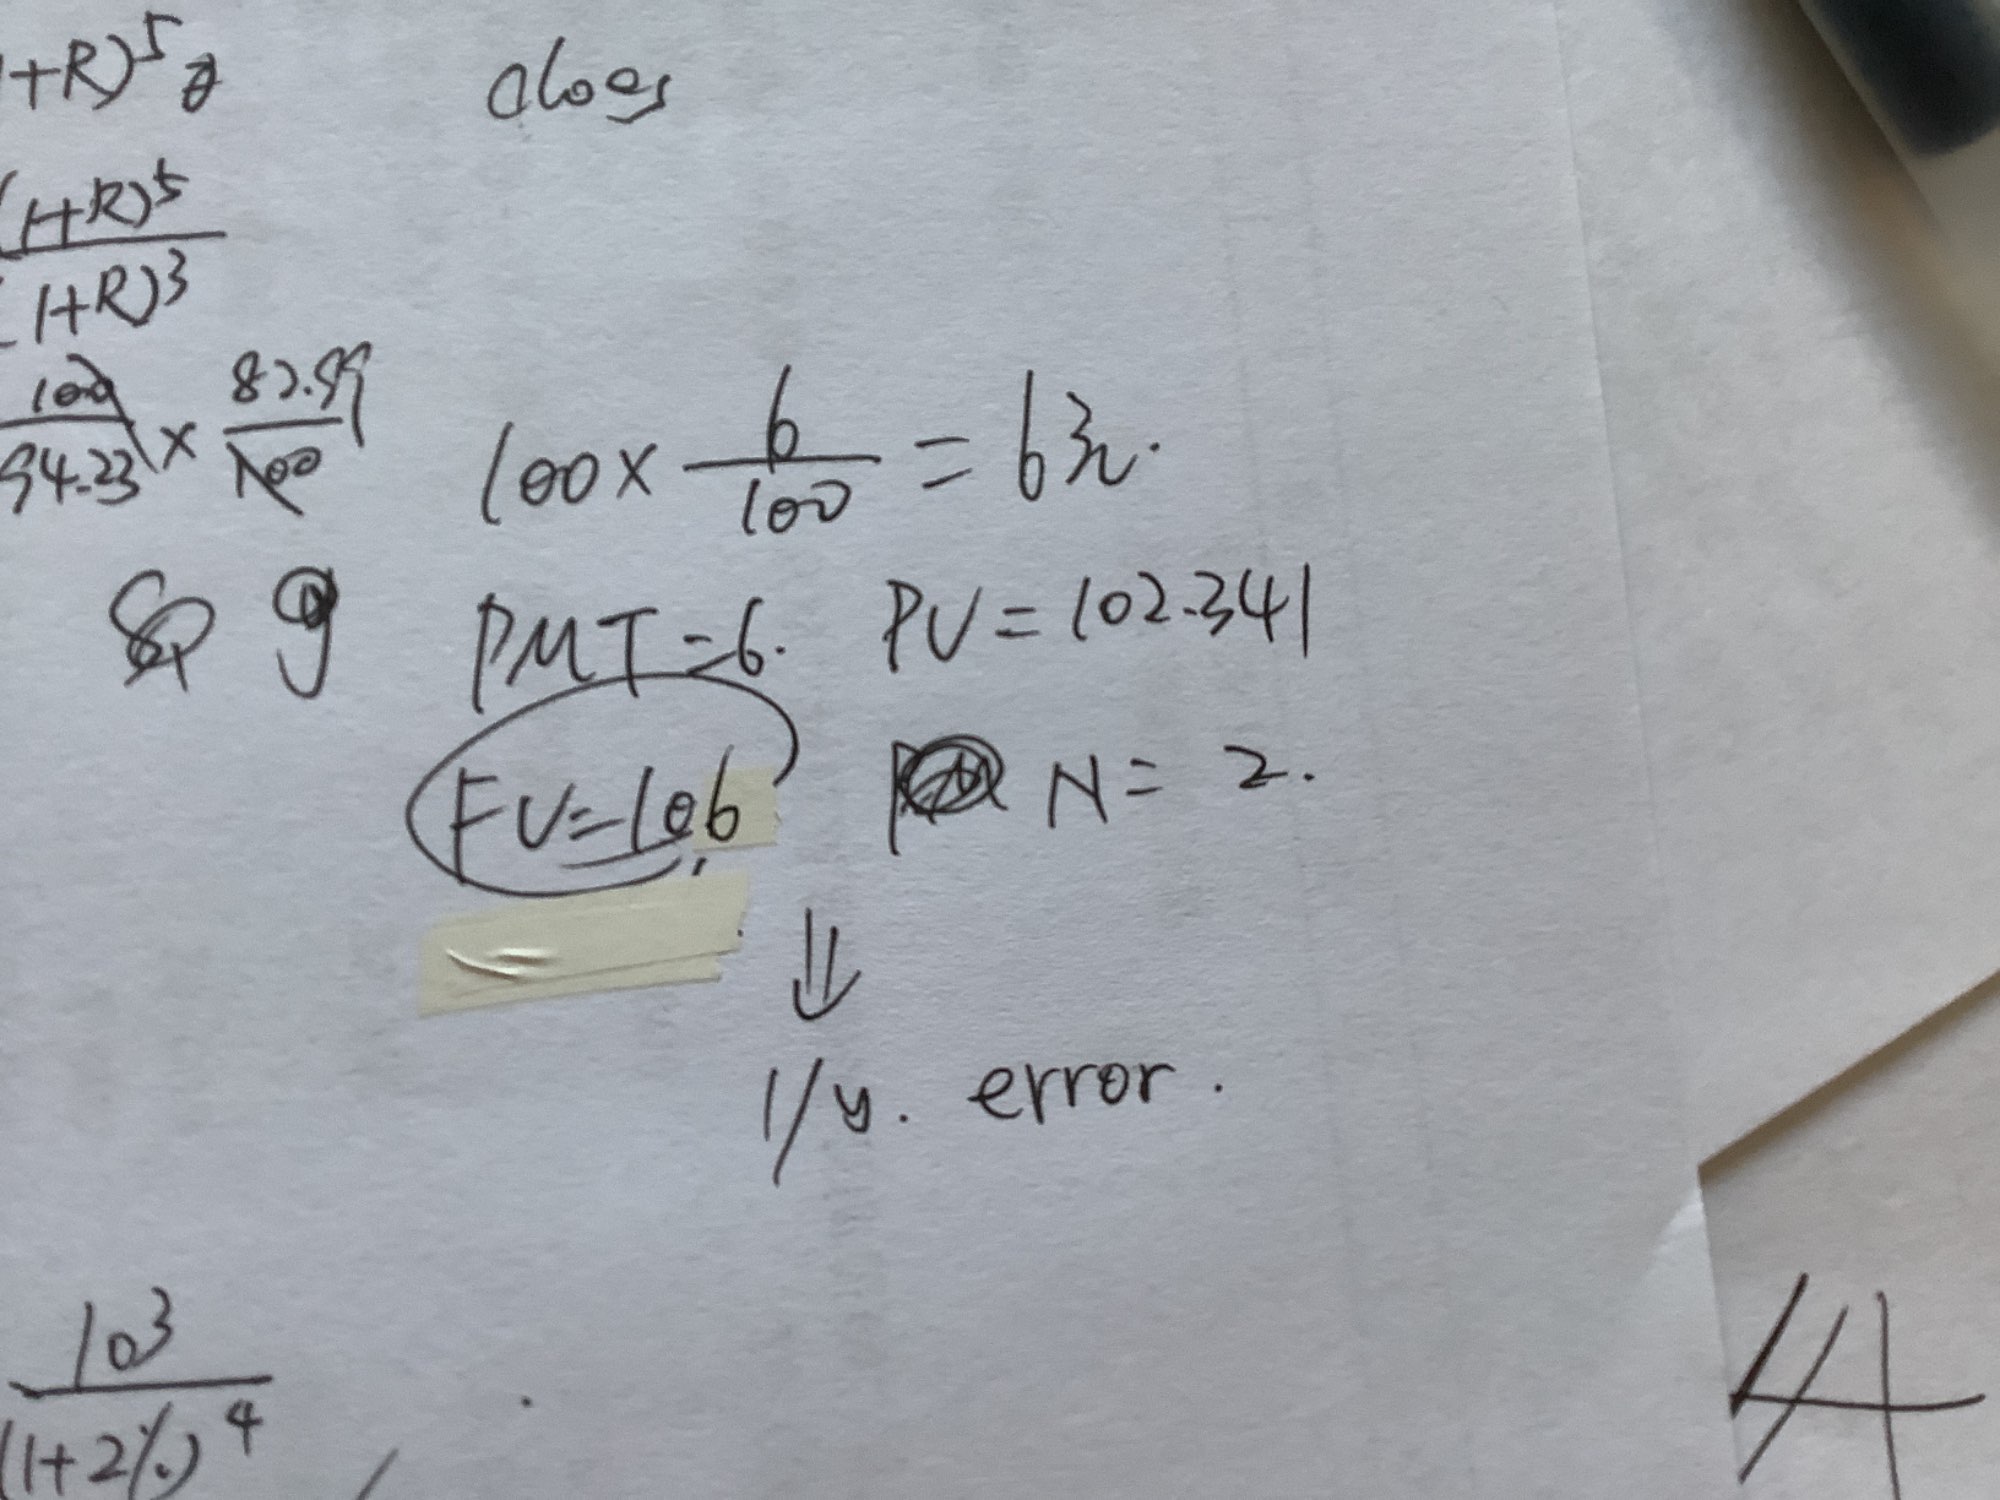 +R)⁵
(1+R)⁵
(1+R)³
100/94.23 × 82.99/100
100 × 6/100 = 6元.
PMT=6. PV=102.341
FV=106 N=2.
⇓
I/y. error.
10³
(1+2%)⁴